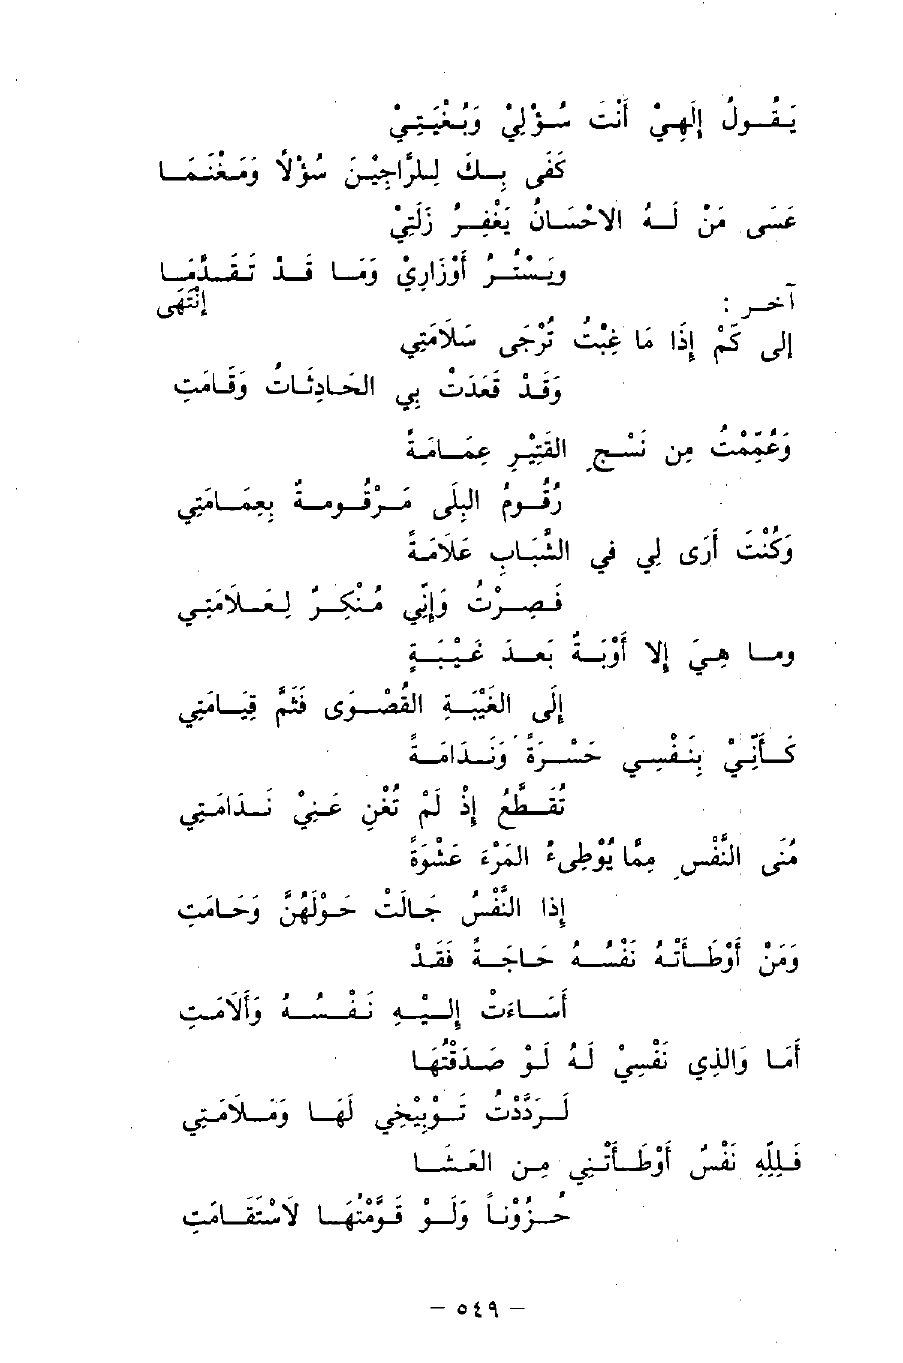 يَقُولُ إِلَهِيْ أَنْتَ سُؤْلِيْ وَبُغْيَتِيْ
كَفَى بِكَ لِلرَّاجِيْنَ سُؤْلاً وَمَغْنَمَا
عَسَى مَنْ لَهُ الاحْسَانُ يَغْفِرُ زَلَتِيْ
وَيَسْتُرُ أَوْزَارِيْ وَمَا قَدْ تَقَدَّمَا
آخر : إِنْتَهَى
إلى كَمْ إِذَا مَا غِبْتُ تُرْجَى سَلَامَتِي
وَقَدْ قَعَدَتْ بِي الحَادِثَاتُ وَقَامَتِ
وَعُمِّمْتُ مِن نَسْجِ القَتِيْرِ عِمَامَةً
رُقُومُ البِلَى مَرْقُومةٌ بِعِمَامَتِي
وَكُنْتَ أَرَى لِي في الشَّبَابِ عَلَامَةً
فَصِرْتُ وَإِنِّي مُنْكِرٌ لِعَلَامَتِي
وما هِيَ إِلا أَوْبَةٌ بَعدَ غَيْبَةٍ
إِلَى الغَيْبَةِ القُصْوَى فَثَمَّ قِيَامَتِي
كَأَنِّيْ بِنَفْسِي حَسْرَةً وَنَدَامَةً
تُقَطَّعُ إِذْ لَمْ تُغْنِ عَنِيْ نَدَامَتِي
مُنَى النَّفْسِ مِمَّا يُوْطِىءُ المَرْءَ عَشْوَةً
إِذا النَّفْسُ جَالَتْ حَوْلَهُنَّ وَحَامَتِ
وَمَنْ أَوْطَأَتْهُ نَفْسُهُ حَاجَةً فَقَدْ
أَسَاءَتْ إِلَيْهِ نَفْسُهُ وَأَلَامَتِ
أَمَا وَالذِي نَفْسِيْ لَهُ لَوْ صَدَقْتُهَا
لَرَدَّدْتُ تَوْبِيْخِي لَهَا وَمَلَامَتِي
فَلِلَّهِ نَفْسٌ أَوْطَأَتْنِي مِن العَشَا
حُزُوْناً وَلَوْ قَوَّمْتُهَا لَاسْتَقَامَتِ
- ٥٤٩ -